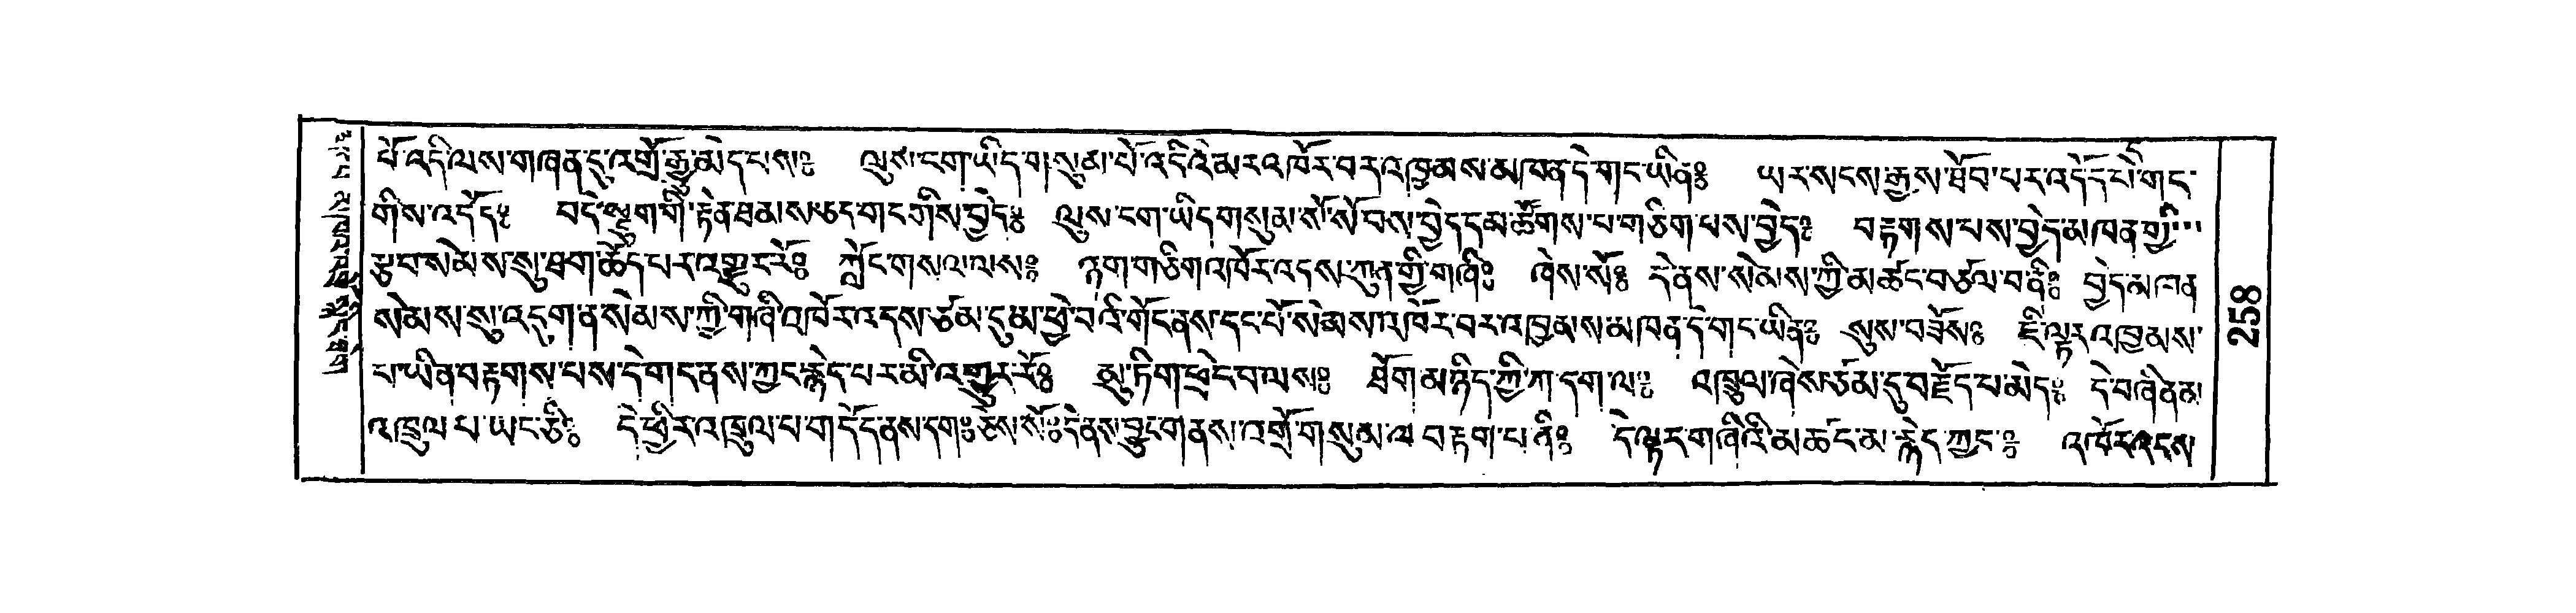 པོ་འདི་ལས་གཞན་དུ་འགྲོ་རྒྱུ་མེད་པས༔ ལུས་ངག་ཡིད་གསུམ་པོ་འདིའི་ནམ་རའ་ཁོར་བར་འཁྱམས་མཁན་དེ་གང་ཡིན༔ ཡར་སངས་རྒྱས་ཐོབ་པར་འདོད་པོ་དེ་གང་
གིས་འདོད༔ བདེ་སྡུག་གི་རྟེན་ཐམས་ཅད་གང་གིས་བྱེད༔ ལུས་ངག་ཡིད་གསུམ་སོ་སོ་བས་བྱེད་དམ་ཚོགས་པ་གཅིག་པས་བྱེད༔ བརྟགས་པས་བྱེད་མཁན་གྱི་
རྩ་བ་སེམས་སུ་ཐག་ཆོད་པར་འགྱུར་རོ༔ ཀློང་གསལ་ལས༔ ཉག་གཅིག་འཁོར་འདས་ཀུན་གྱི་གཞི༔ ཞེས་སོ༔ དེ་ནས་སེམས་ཀྱི་མཚང་བཙལ་བ་ནི༔ བྱེད་མཁན
སེམས་སུ་འདུག་ན་སེམས་ཀྱི་གཞི་འཁོར་འདས་ཙམ་དུ་མ་ཕྱེ་བའི་གོང་ནས་དང་པོ་སེམས་འཁོར་བར་འཁྱམས་མཁན་དེ་གང་ཡིན༔ སུས་བཟོས༔ ཇི་ལྟར་འཁྱམས་
པ་ཡིན་བརྟགས་པས་དེ་གང་ནས་ཀྱང་རྙེད་པར་མི་འགྱུར་རོ༔ མུ་ཏིག་ཕྲེང་བ་ལས༔ ཐོག་མ་ཉིད་ཀྱི་ཀ་དག་ལ༔ འཁྲུལ་ཞེས་ཙམ་དུ་བརྗོད་པ་མེད༔ དེ་བཞིན་མ
འཁྲུལ་པ་ཡང་ཅི༔ དེ་ཕྱིར་འཁྲུལ་པ་གདོད་ནས་དག༔ ཅེས་སོ༔ དེ་ནས་བྱུང་གནས་འགྲོ་གསུམ་ལ་བརྟག་པ་ནི༔ དེ་ལྟར་གཞིའི་མཚང་མ་རྙེད་ཀྱང་༔ འཁོར་འདས